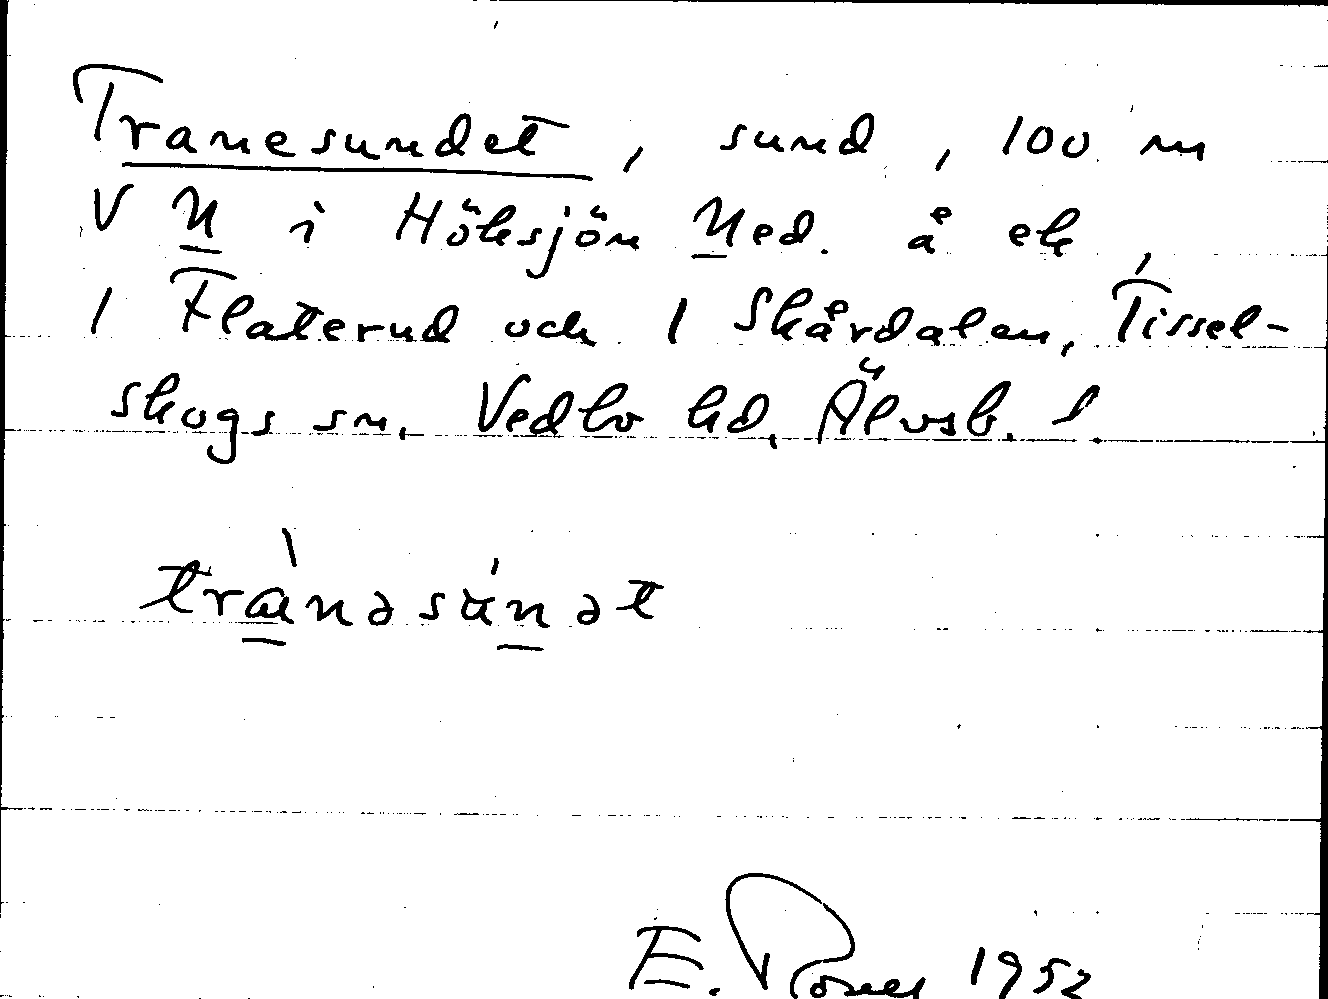 Tranesundet, sund, 100 m
V N i Höksjön Ned. å ek,
1 Flaterud och 1 Skårdalen, Tissel-
skogs sn. Vedbo hd, Älvsb. l.
trànəsúnət
E. 1952